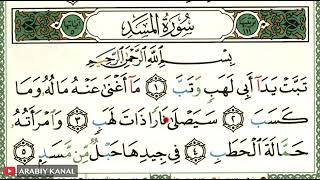 سُورَةُ الْمَسَدِ
بِسْمِ اللَّهِ الرَّحْمَٰنِ الرَّحِيمِ
تَبَّتْ يَدَآ أَبِي لَهَبٍ وَتَبَّ ١ مَآ أَغْنَىٰ عَنْهُ مَالُهُ وَمَا
كَسَبَ ٢ سَيَصْلَىٰ نَارًا ذَاتَ لَهَبٍ ٣ وَامْرَأَتُهُ
حَمَّالَةَ الْحَطَبِ ٤ فِي جِيدِهَا حَبْلٌ مِّن مَّسَدٍ ٥
ARABIY KANAL